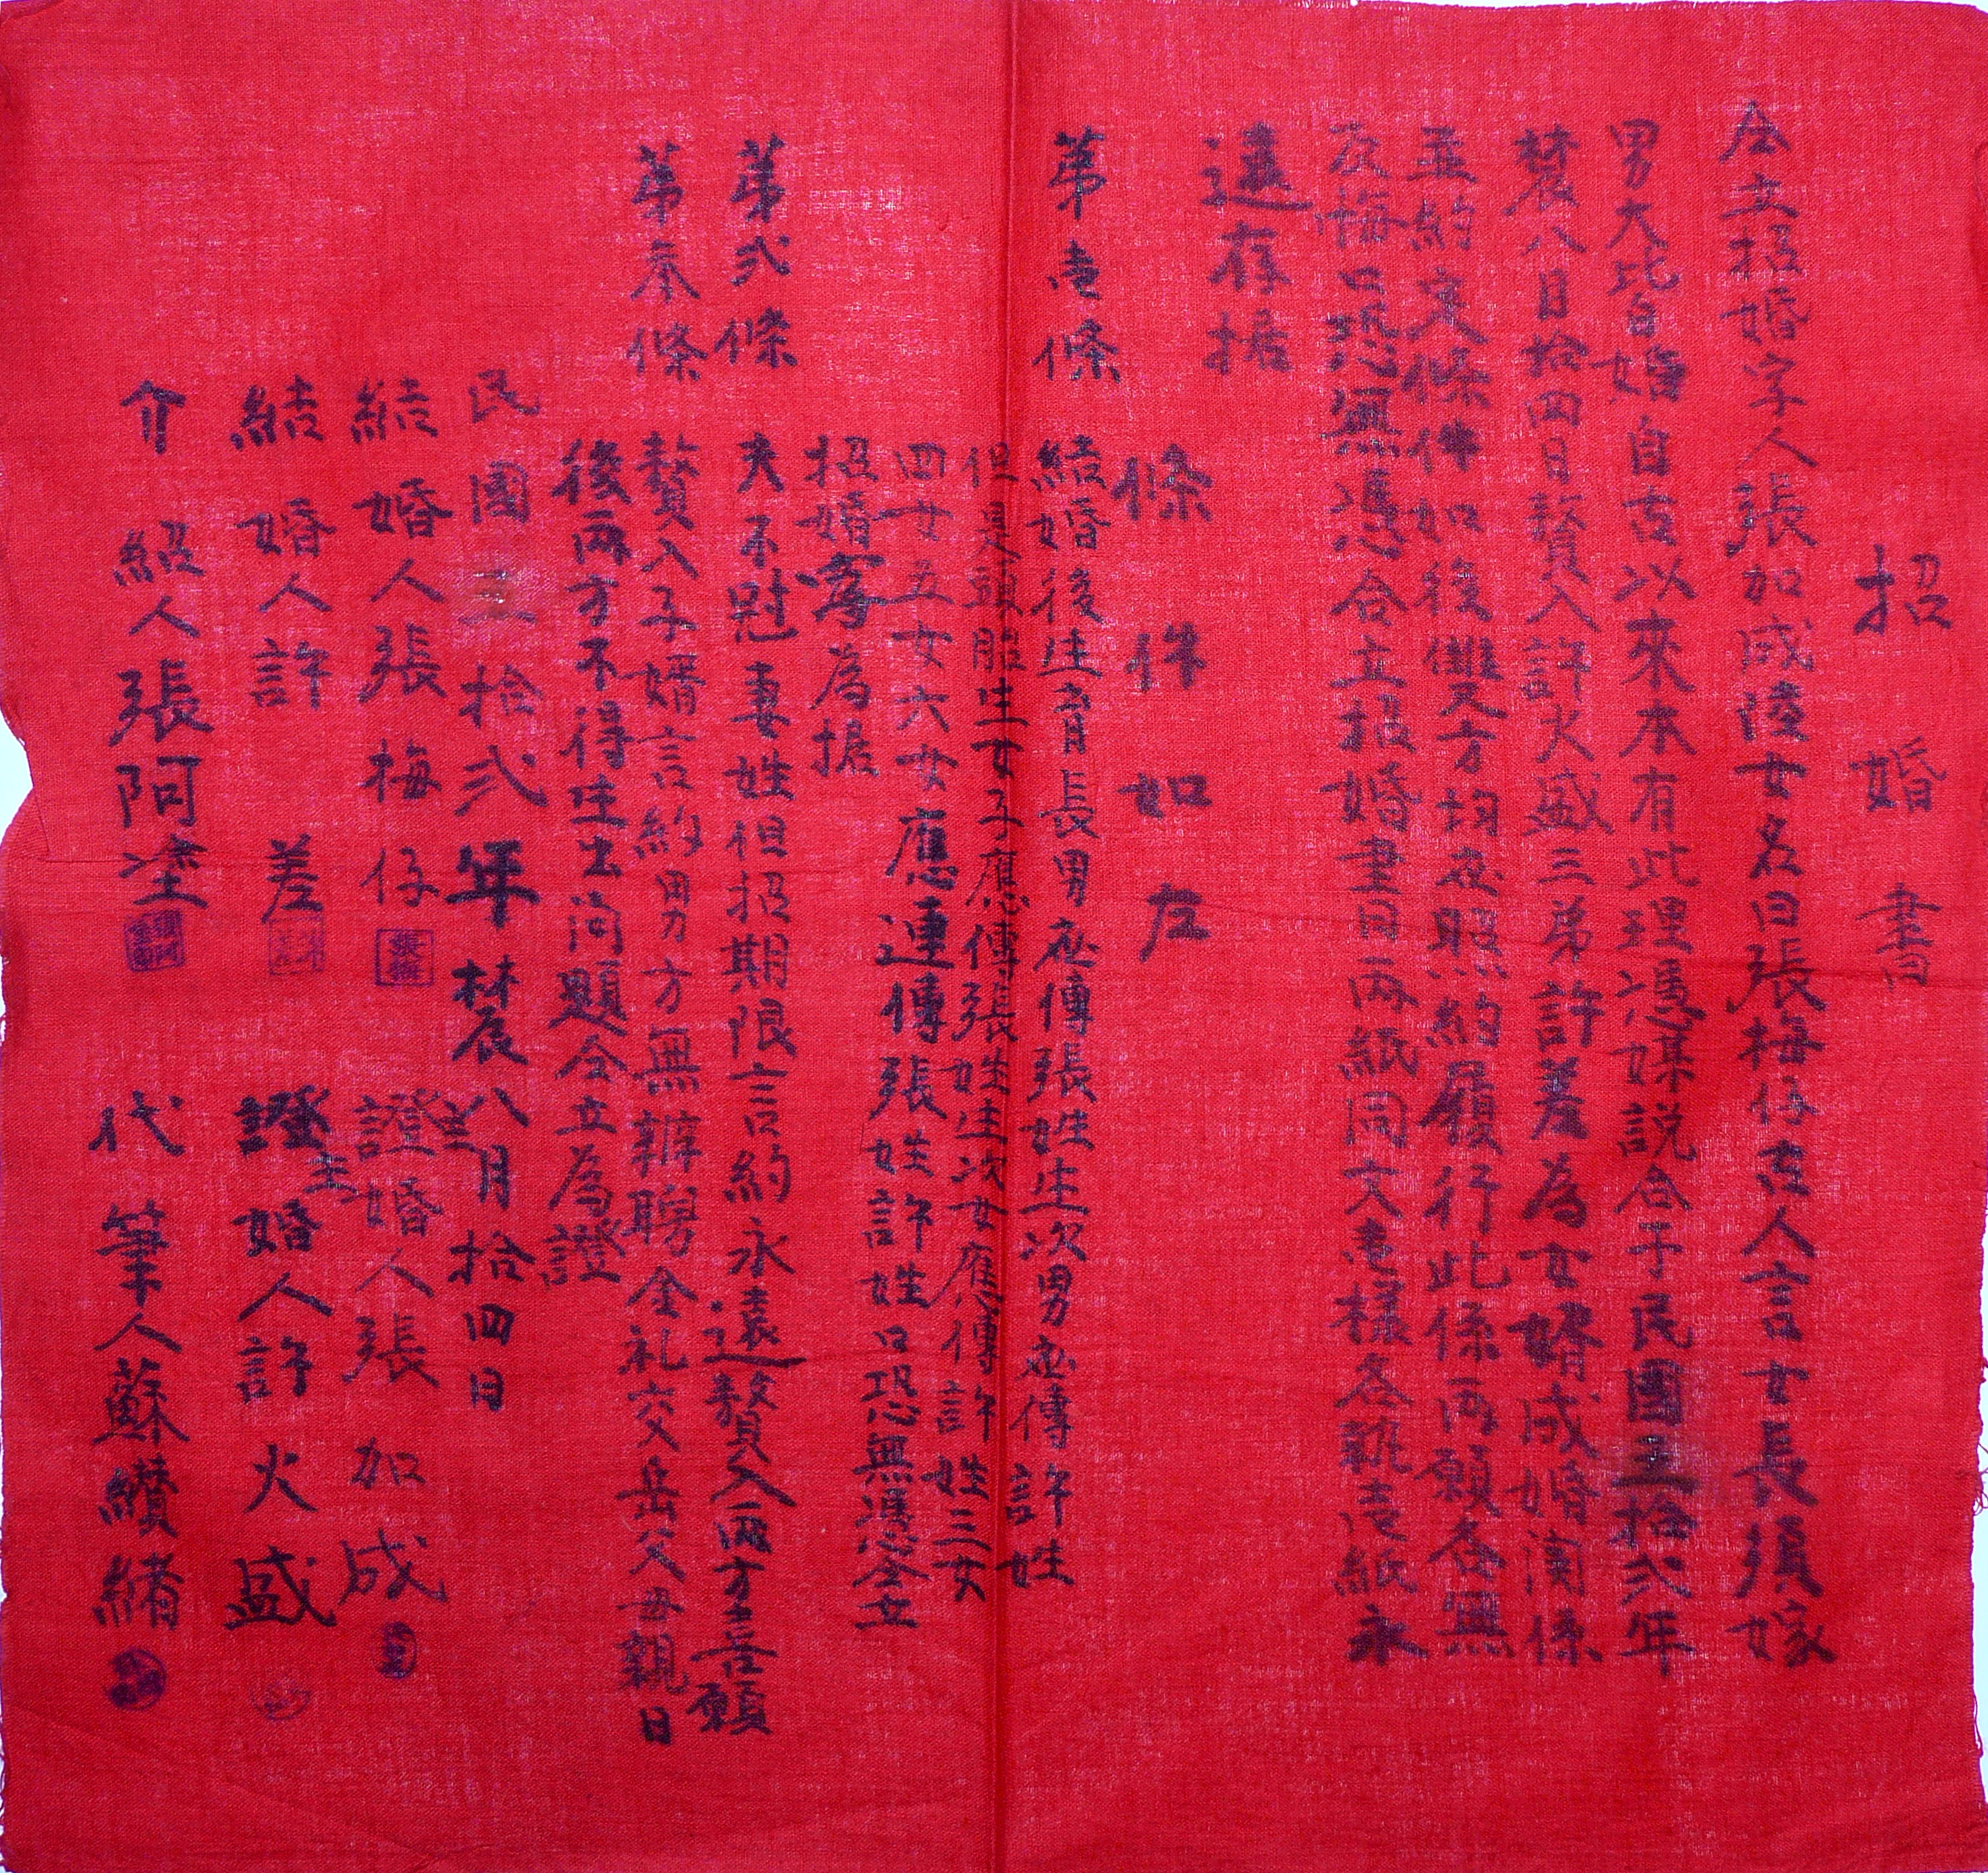 招婚書
仝立招婚字人張加成陸女名曰張梅仔古人言女長須嫁
男大比自婚自古以來本有此理憑媒説合于民國五拾弍年
農八日拾四日贅入許火盛三弟許差為女婿成婚関係
並約定條件如後雙方均应照約履行此係両願各無
反悔口恐無憑合立招婚書日両紙同文壱樣各執壱紙永
遠存据
條件如左
第壱條 結婚後生育長男应傳張姓生次男应傳許姓
但是頭胎生女子應傳張姓生次女應傳許姓三女
四女五女六女應連傳張姓許姓口恐無憑仝立
招婚寫為据
第弍條 夫不慰妻姓但招期限言約永遠贅入両方喜願
第叁條 贅入子婿言約男方無辦聘金礼交岳父母親日
後両方不得生出问題仝立為證
民國五拾弍年農八月拾四日
結婚人張梅仔 證婚人張加成
結婚人許差 證婚人許火盛
介紹人張阿塗 代筆人蘇纘緒